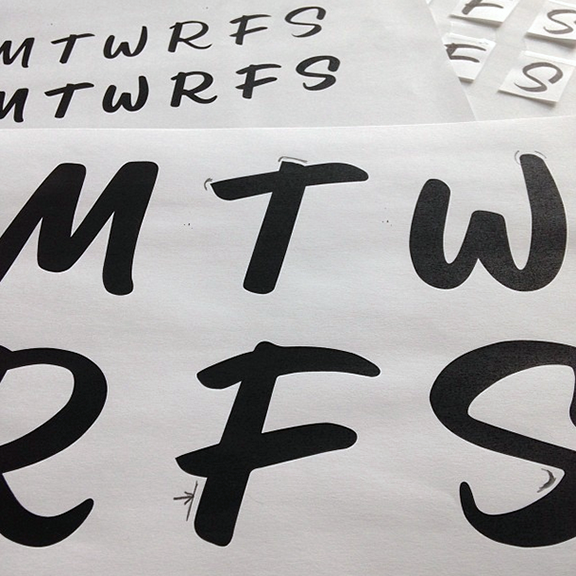 M T W R F S
M T W R F S
F S
F S
M T W
R F S